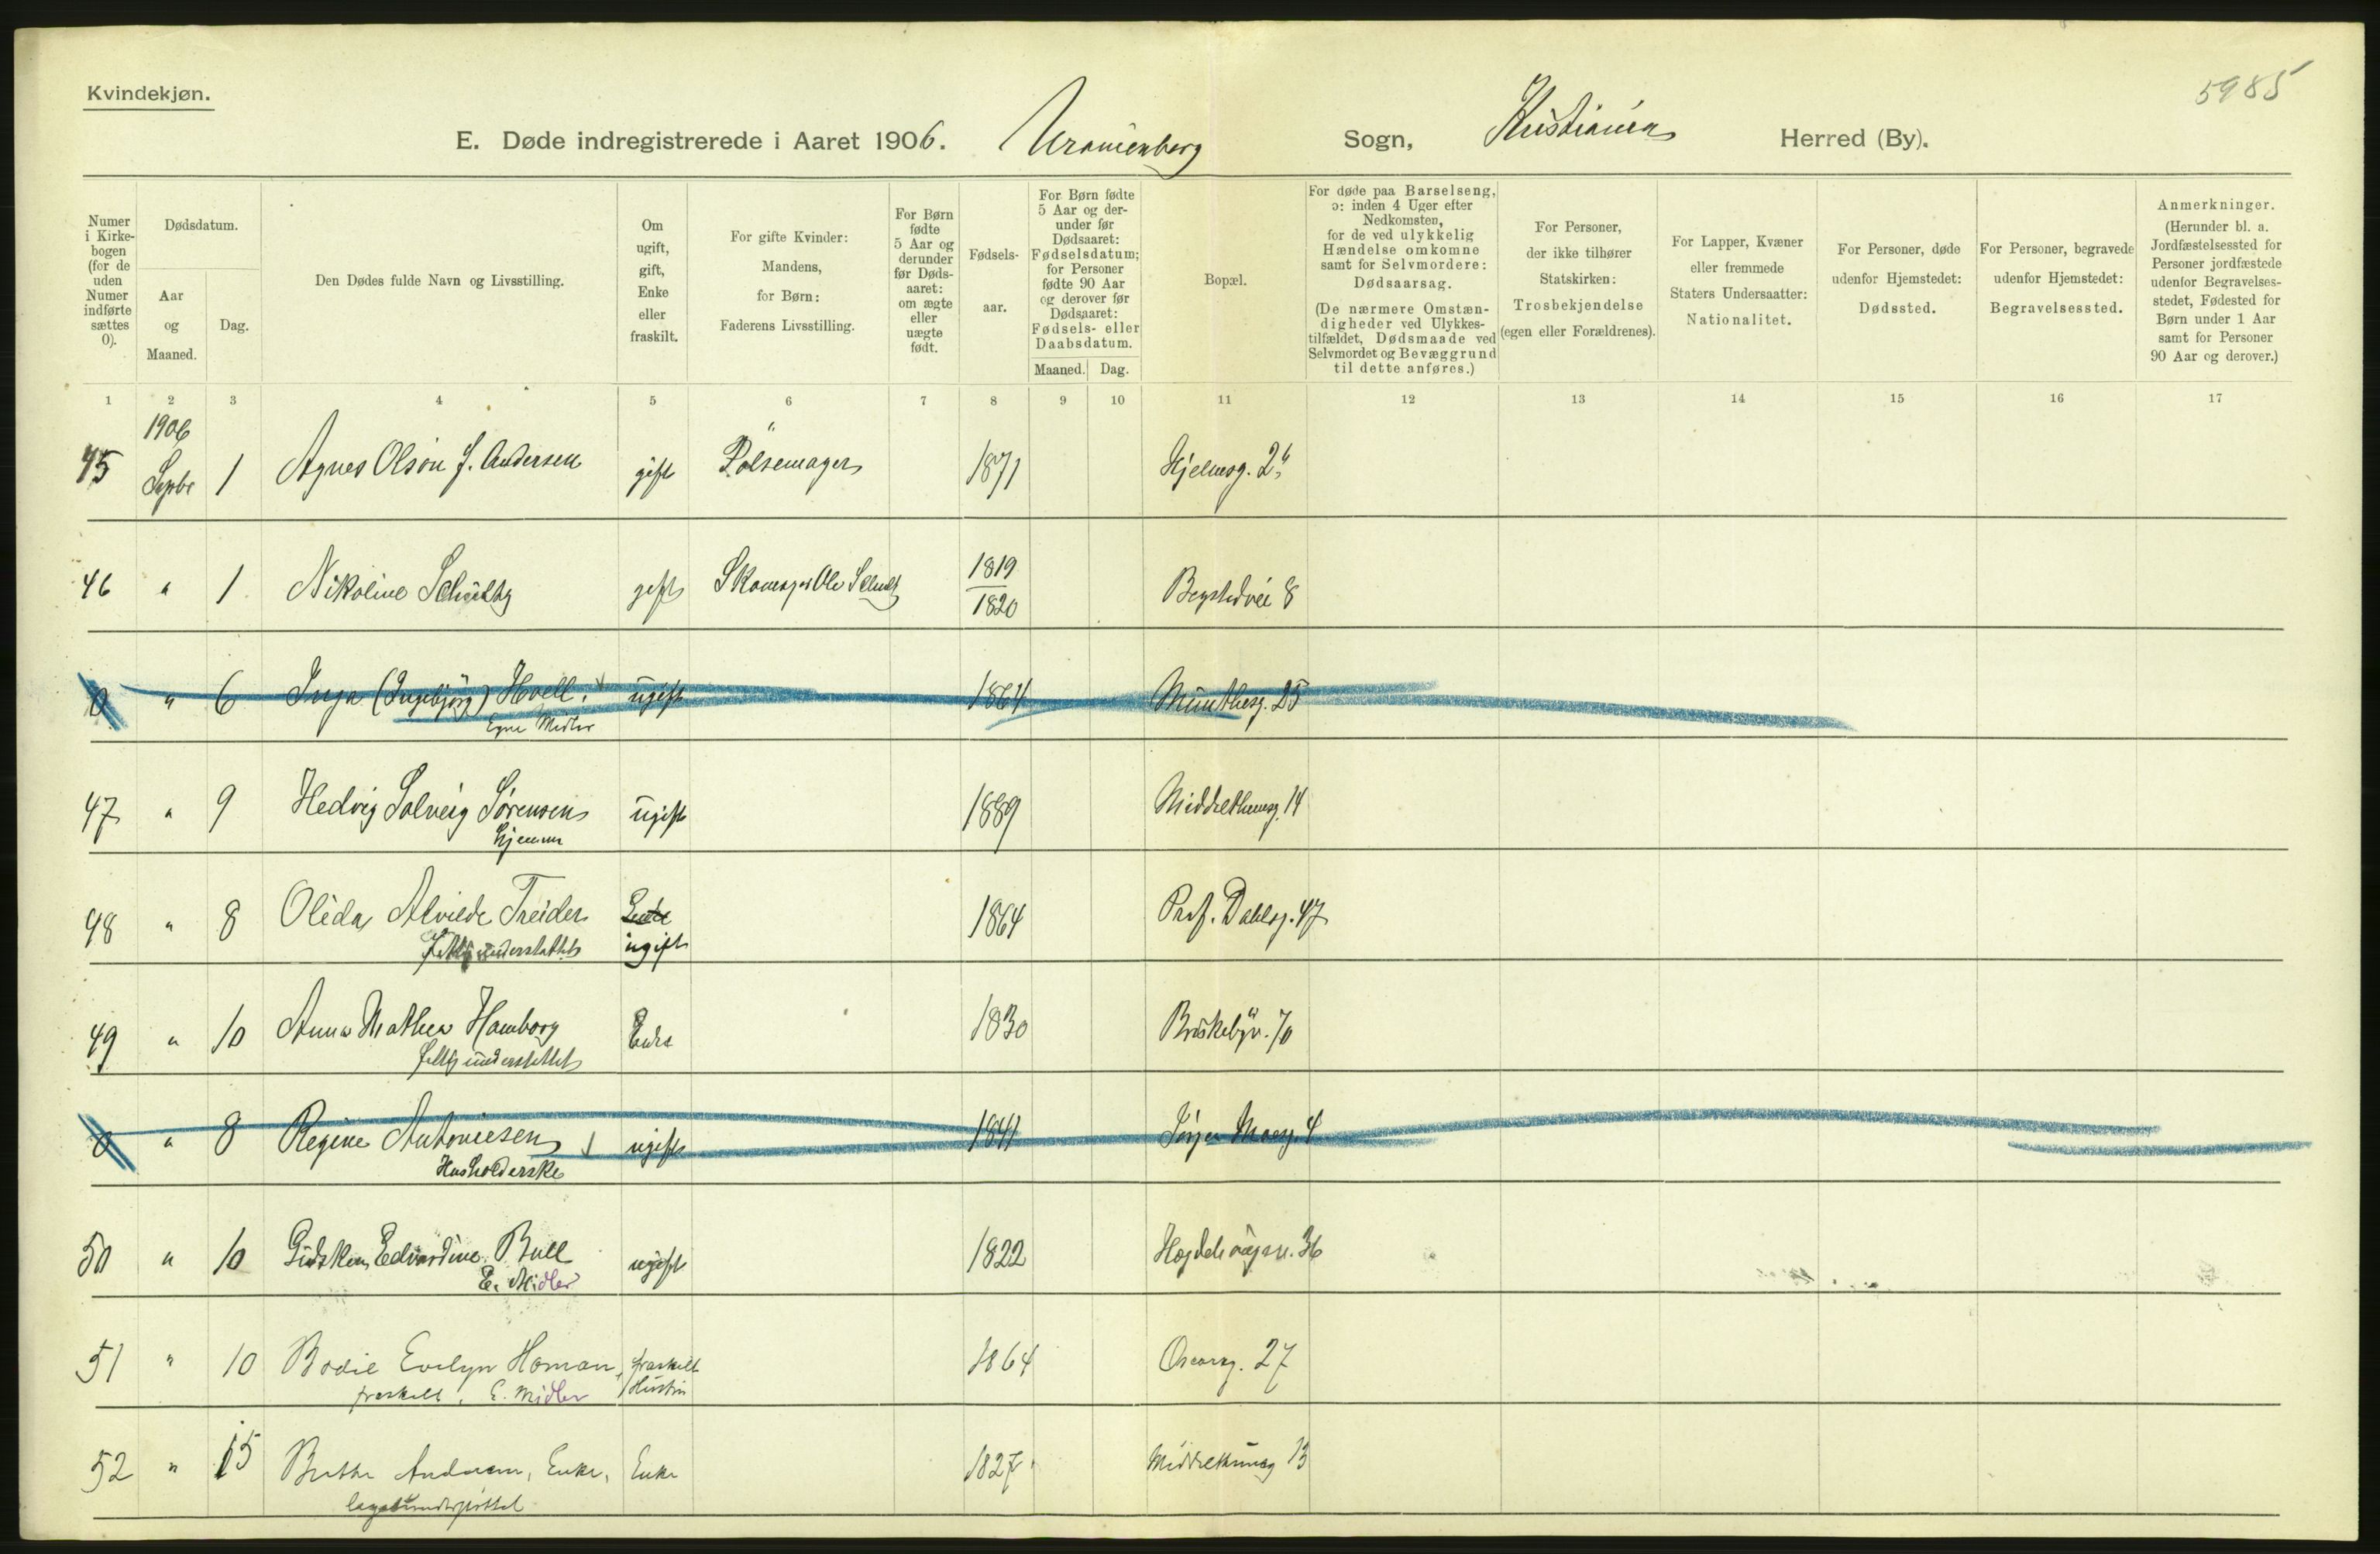 Kvindekjøn.
5985
E. Døde indregistrerede i Aaret 1906. Uranienborg Sogn, Kristiania Herred (By).
Numer i Kirkebogen (for de uden Numer indførte sættes 0).
Dødsdatum.
Aar og Maaned.
Dag.
Den Dødes fulde Navn og Livsstilling.
Om ugift, gift, Enke eller fraskilt.
For gifte Kvinder: Mandens, for Børn: Faderens Livsstilling.
For Børn fødte 5 Aar og derunder før Dødsaaret: om ægte eller uægte født.
Fødselsaar.
For Børn fødte 5 Aar og derunder før Dødsaaret: Fødselsdatum; for Personer fødte 90 Aar og derover før Dødsaaret: Fødsels- eller Daabsdatum.
Maaned. Dag.
Bopæl.
For døde paa Barselseng, ɔ: inden 4 Uger efter Nedkomsten, for de ved ulykkelig Hændelse omkomne samt for Selvmordere: Dødsaarsag.
(De nærmere Omstændigheder ved Ulykkestilfældet, Dødsmaade ved Selvmordet og Bevæggrund til dette anføres.)
For Personer, der ikke tilhører Statskirken: Trosbekjendelse (egen eller Forældrenes).
For Lapper, Kvæner eller fremmede Staters Undersaatter: Nationalitet.
For Personer, døde udenfor Hjemstedet: Dødssted.
For Personer, begravede udenfor Hjemstedet: Begravelsessted.
Anmerkninger. (Herunder bl. a. Jordfæstelsessted for Personer jordfæstede udenfor Begravelsesstedet, Fødested for Børn under 1 Aar samt for Personer 90 Aar og derover.)
1 2 3 4 5 6 7 8 9 10 11 12 13 14 15 16 17
1906
45 Septbr 1 Agnes Olson f. Andersen gift Pølsemager 1871 Hjelmsg. 2
46 " 1 Nikoline Schultz gift Skomager Ole Schultz 1819 1820 8
0 " 6 Inga (Ingebjørg) Hoell. ugift 1864 Munthesg. 25
Egne Midler
47 " 9 Hedvig Solveig Sørensen ugift 1889 Middelthunsg. 14
Hjemme
48 " 8 Olida Alvilde Treider Enke 1864 Prof. Dahlsg. 47
understøttet ugift
49 " 10 Anna Mathea Hamborg Enke 1830 Briskebyv. 70
understøttet
0 " 8 Regine Antoniesen ugift 1841 Jørgen Moesg. 4
Husholderske
50 " 10 Gidsken Edvardine Bull ugift 1822 Hægdehaugsv. 36
E. Midler
51 " 10 Bodil Evelyn Homan, fraskilt 1864 Oscarsg. 27
fraskilt, E. Midler Hustru
52 " 15 Berthe Andersen, Enke, Enke 1827 Middelthunsg 13